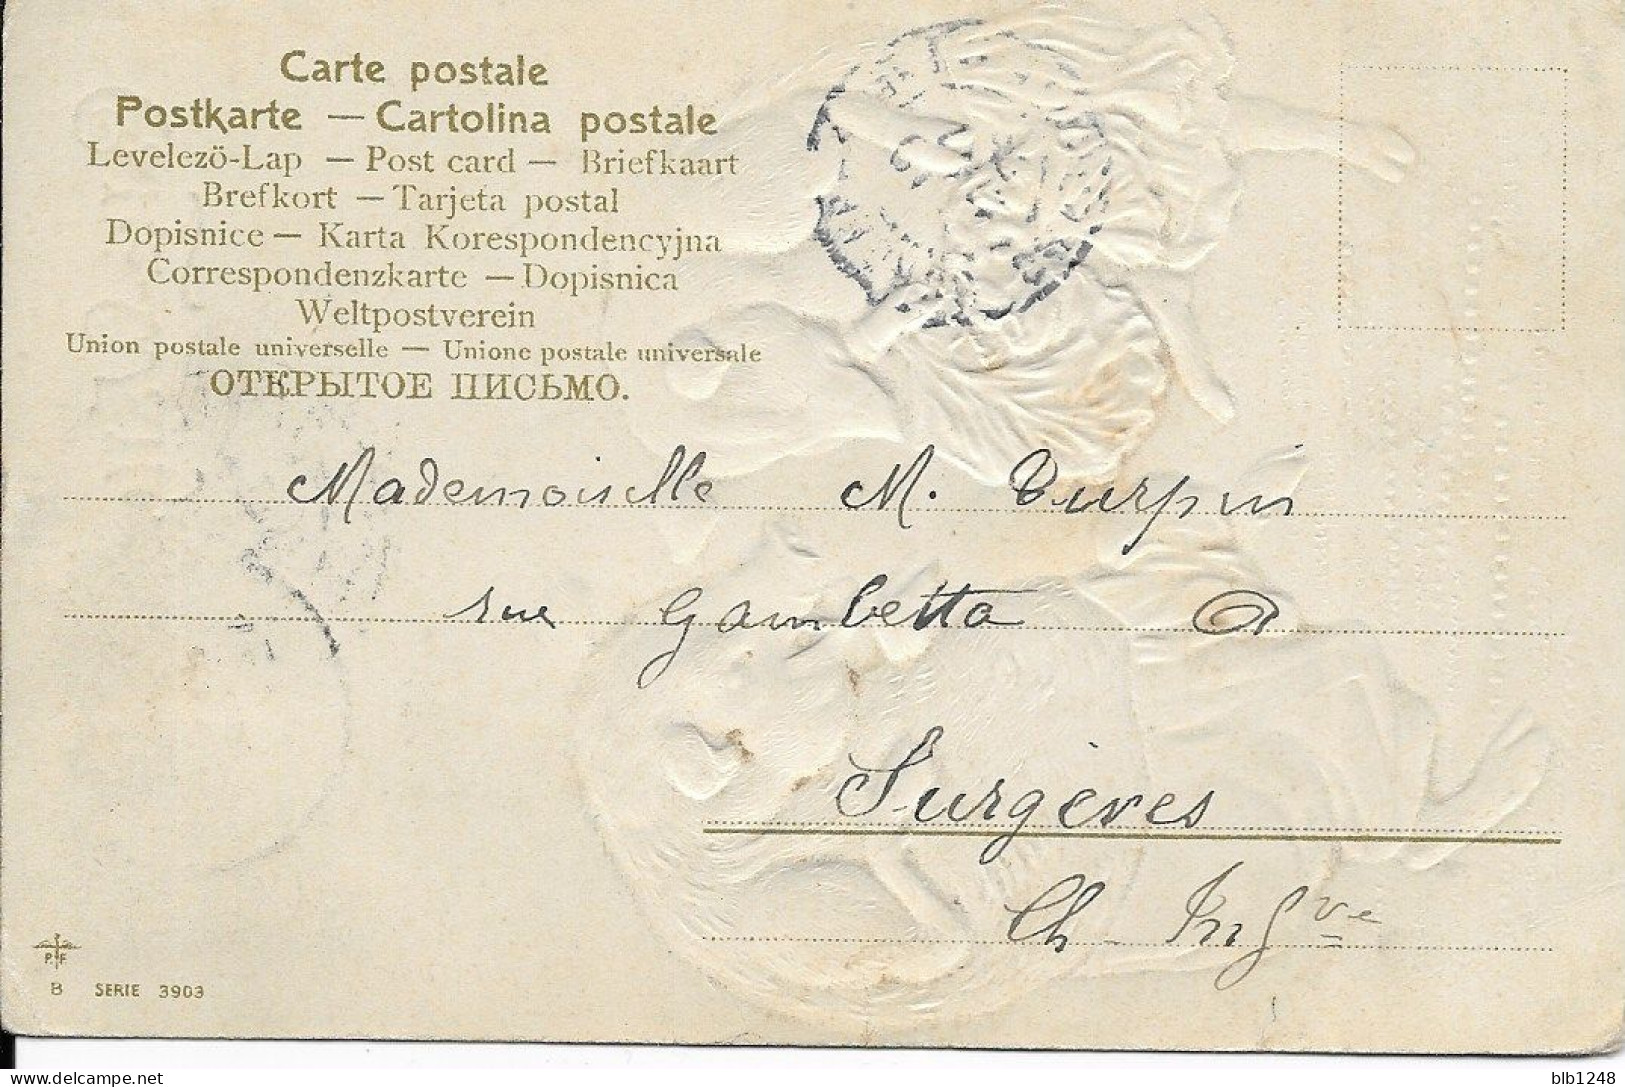 Carte postale
Postkarte — Cartolina postale
Levelezö-Lap — Post card — Briefkaart
Brefkort — Tarjeta postal
Dopisnice — Karta Korespondencyjna
Correspondenzkarte — Dopisnica
Weltpostverein
Union postale universelle — Unione postale universale
ОТКРЫТОЕ ПИСЬМО.
Mademoiselle M. Turpin
rue Gambetta à
Surgères
Ch Infre
P. F.
B SERIE 3903
delcampe.net
blb1248